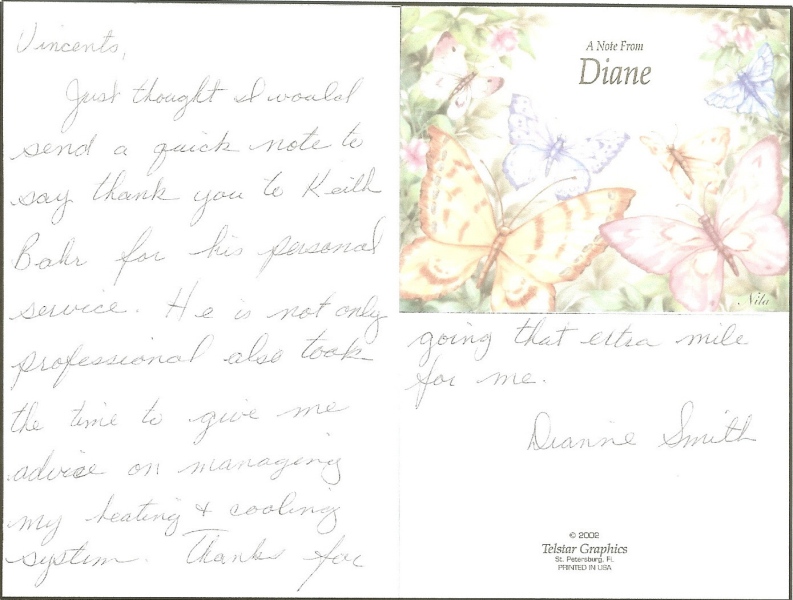 Vincents,
Just thought I would
send a quick note to
say thank you to Keith
Bahr for his personal
service. He is not only
professional also took
the time to give me
advice on managing
my heating & cooling
system. Thanks for
A Note From
Diane
Nila
going that extra mile
for me.
Dianne Smith
© 2002
Telstar Graphics
St. Petersburg, FL
PRINTED IN USA